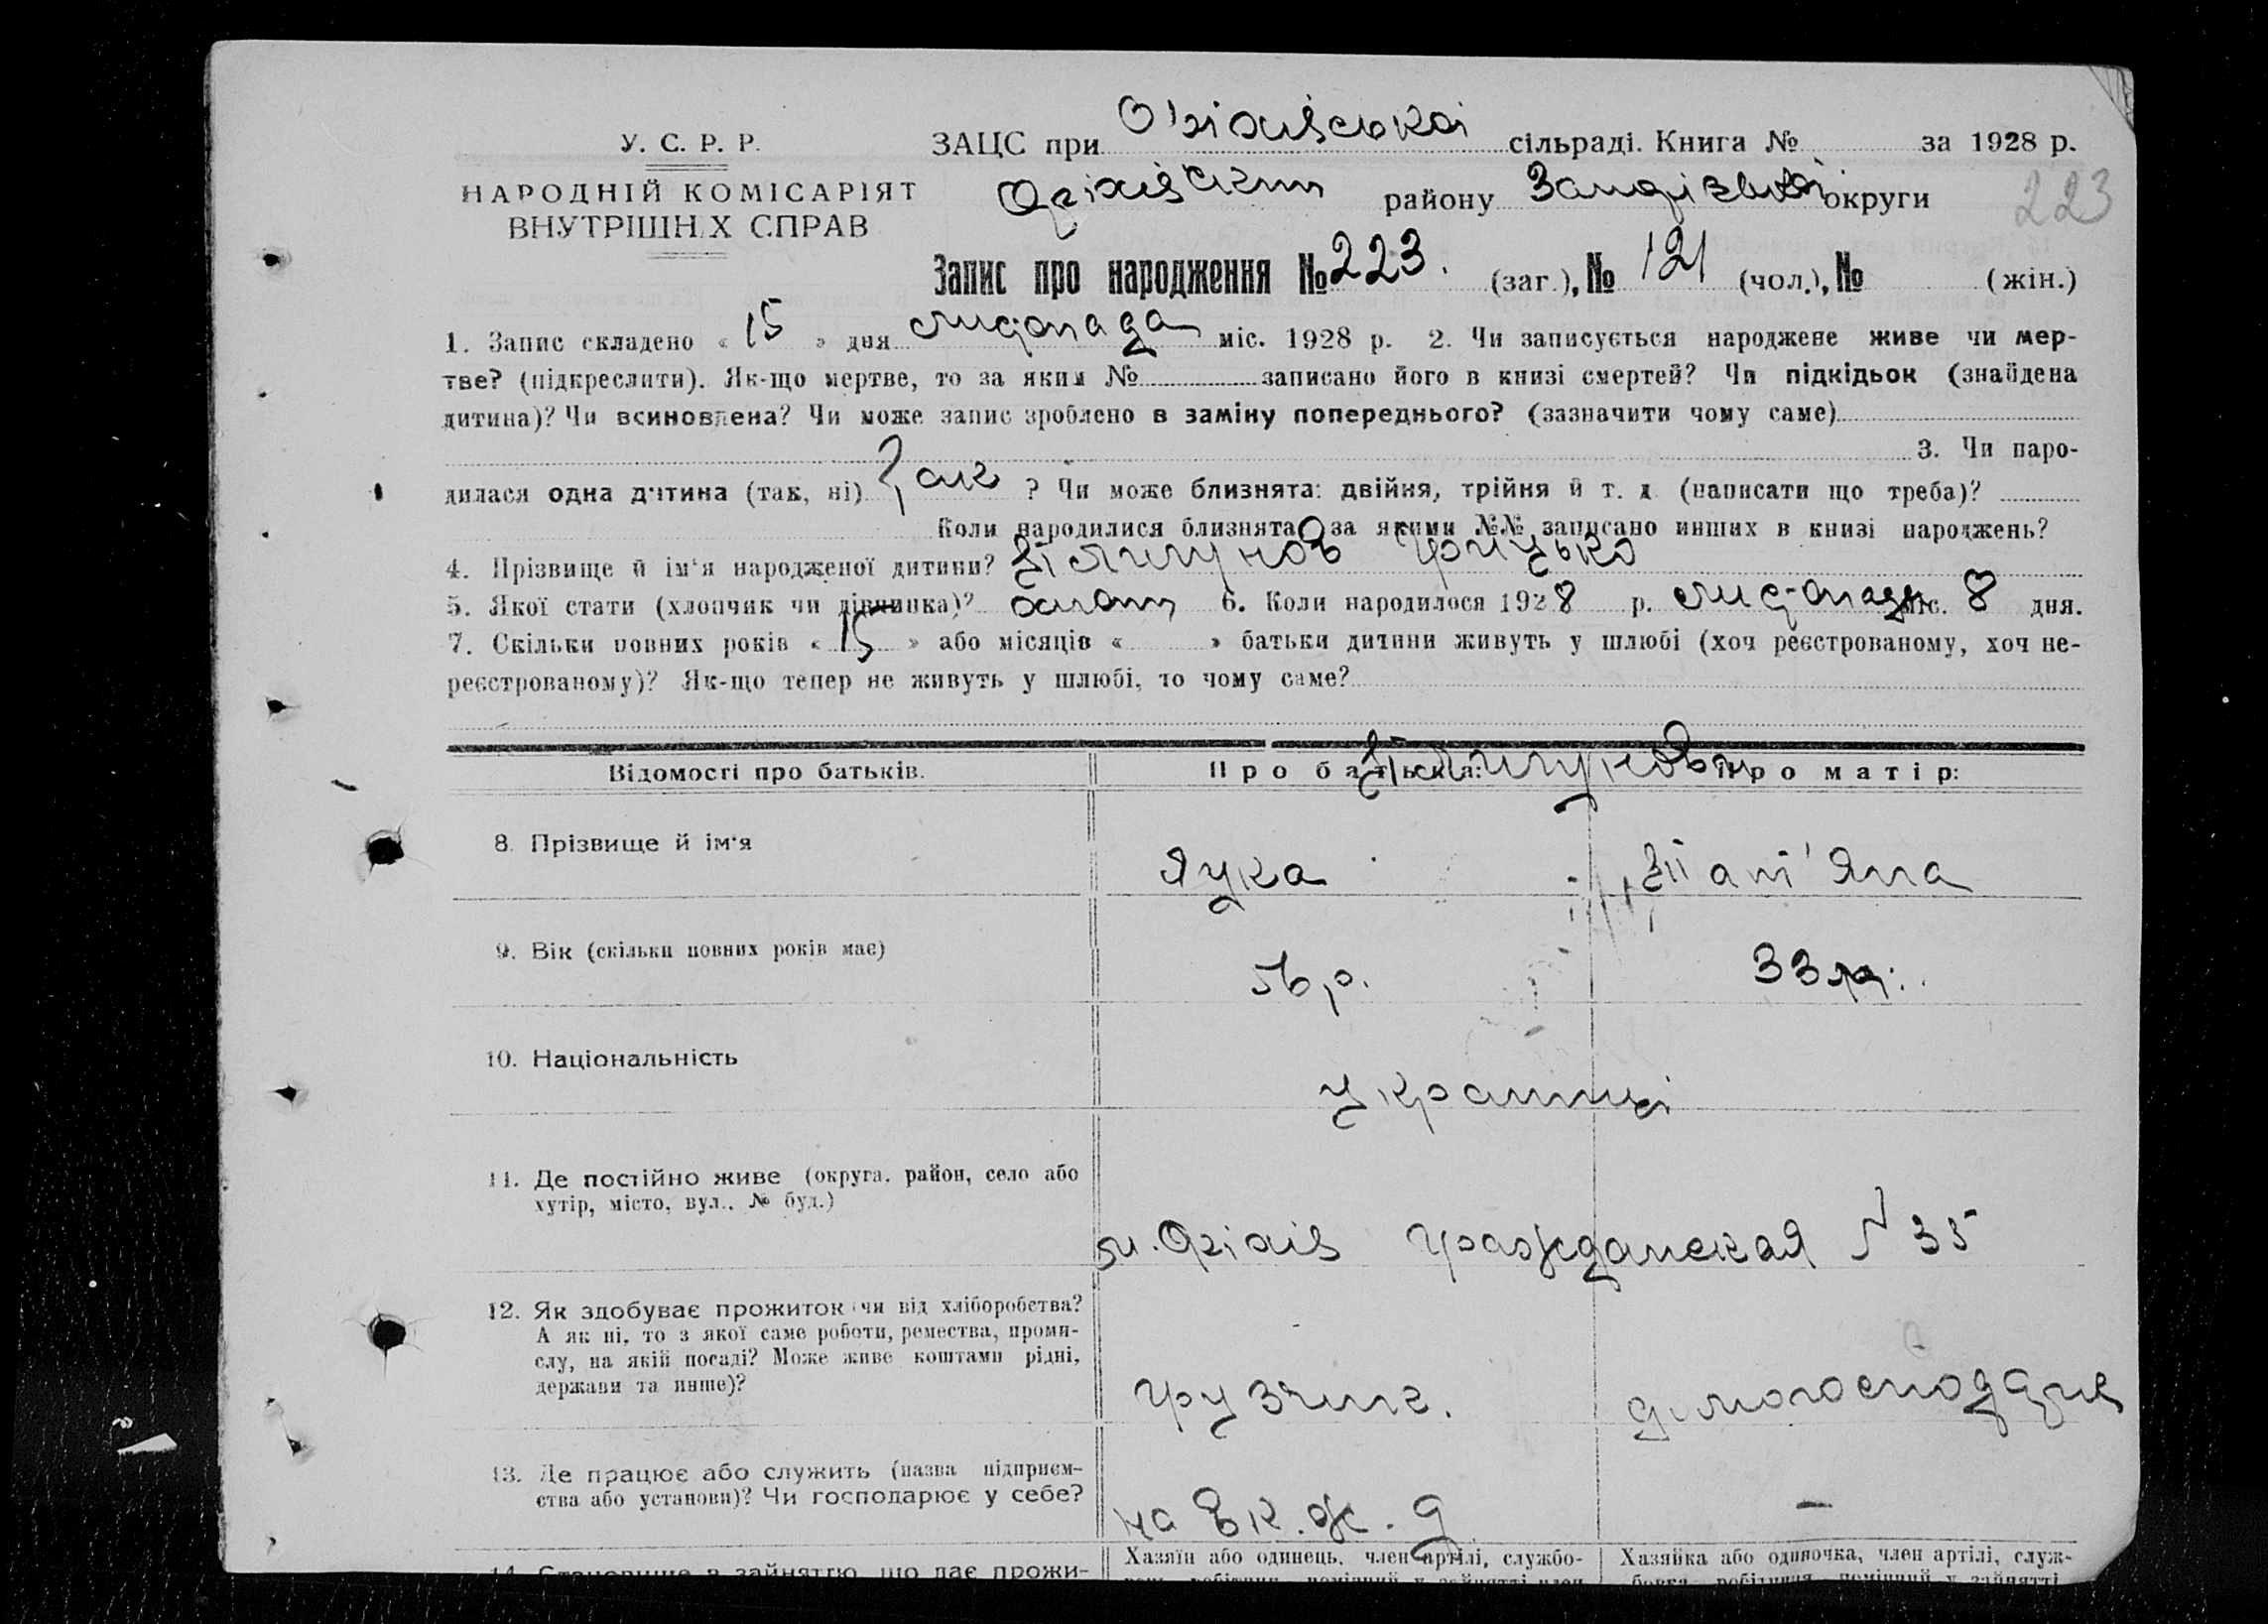 У. С. Р. Р.
НАРОДНІЙ КОМІСАРІЯТ
ВНУТРІШНІХ СПРАВ
ЗАЦС при Оріхівській сільраді. Книга № за 1928 р.
Оріхівськ району Запорізької округи
223
Запис про народження № 223. (заг.), № 121 (чол.), № (жін.)
1. Запис складено « 15 » дня листопада міс. 1928 р. 2. Чи записується народжене живе чи мер-
тве? (підкреслити). Як-що мертве, то за яким № записано його в книзі смертей? Чи підкідьок (знайдена
дитина)? Чи всиновлена? Чи може запис зроблено в заміну попереднього? (зазначити чому саме)
3. Чи наро-
дилася одна дитина (так, ні) так ? Чи може близнята: двійня, трійня й т. д. (написати що треба)?
Коли народилися близнята за якими №№ записано инших в книзі народжень?
4. Прізвище й ім'я народженої дитини? Грицько
5. Якої стати (хлопчик чи дівчинка)? хлоп 6. Коли народилося 1928 р. листопада міс. 8 дня.
7. Скільки повних років « 15 » або місяців « » батьки дитини живуть у шлюбі (хоч реєстрованому, хоч не-
реєстрованому)? Як-що тепер не живуть у шлюбі, то чому саме?
Відомості про батьків. Про батька: Про матір:
8. Прізвище й ім'я Лука Тат'яна
9. Вік (скільки повних років має) р. 33
10. Національність українці
11. Де постійно живе (округа, район, село або
хутір, місто, вул., № буд.)
м. Оріхів Гражданская № 35
12. Як здобуває прожиток чи від хліборобства?
А як ні, то з якої саме роботи, ремества, проми-
слу, на якій посаді? Може живе коштами рідні,
держави та инше)?
грузчик. домогосподарка
13. Де працює або служить (назва підприєм-
ства або установи)? Чи господарює у себе?
на Ек. ж. д. —
14. Становище в зайняттю, що дає прожи-
Хазяїн або одинець, член артілі, службо-
Хазяйка або одиночка, член артілі, служ-